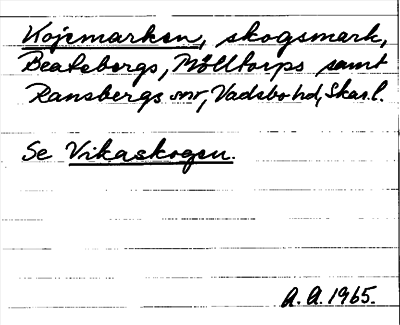 Kojemarken, skogsmark,
Beatebergs, Mölltorps samt
Ransbergs snr, Vadsbo hd, Skar. l.
Se Vikaskogen.
A. A. 1965.